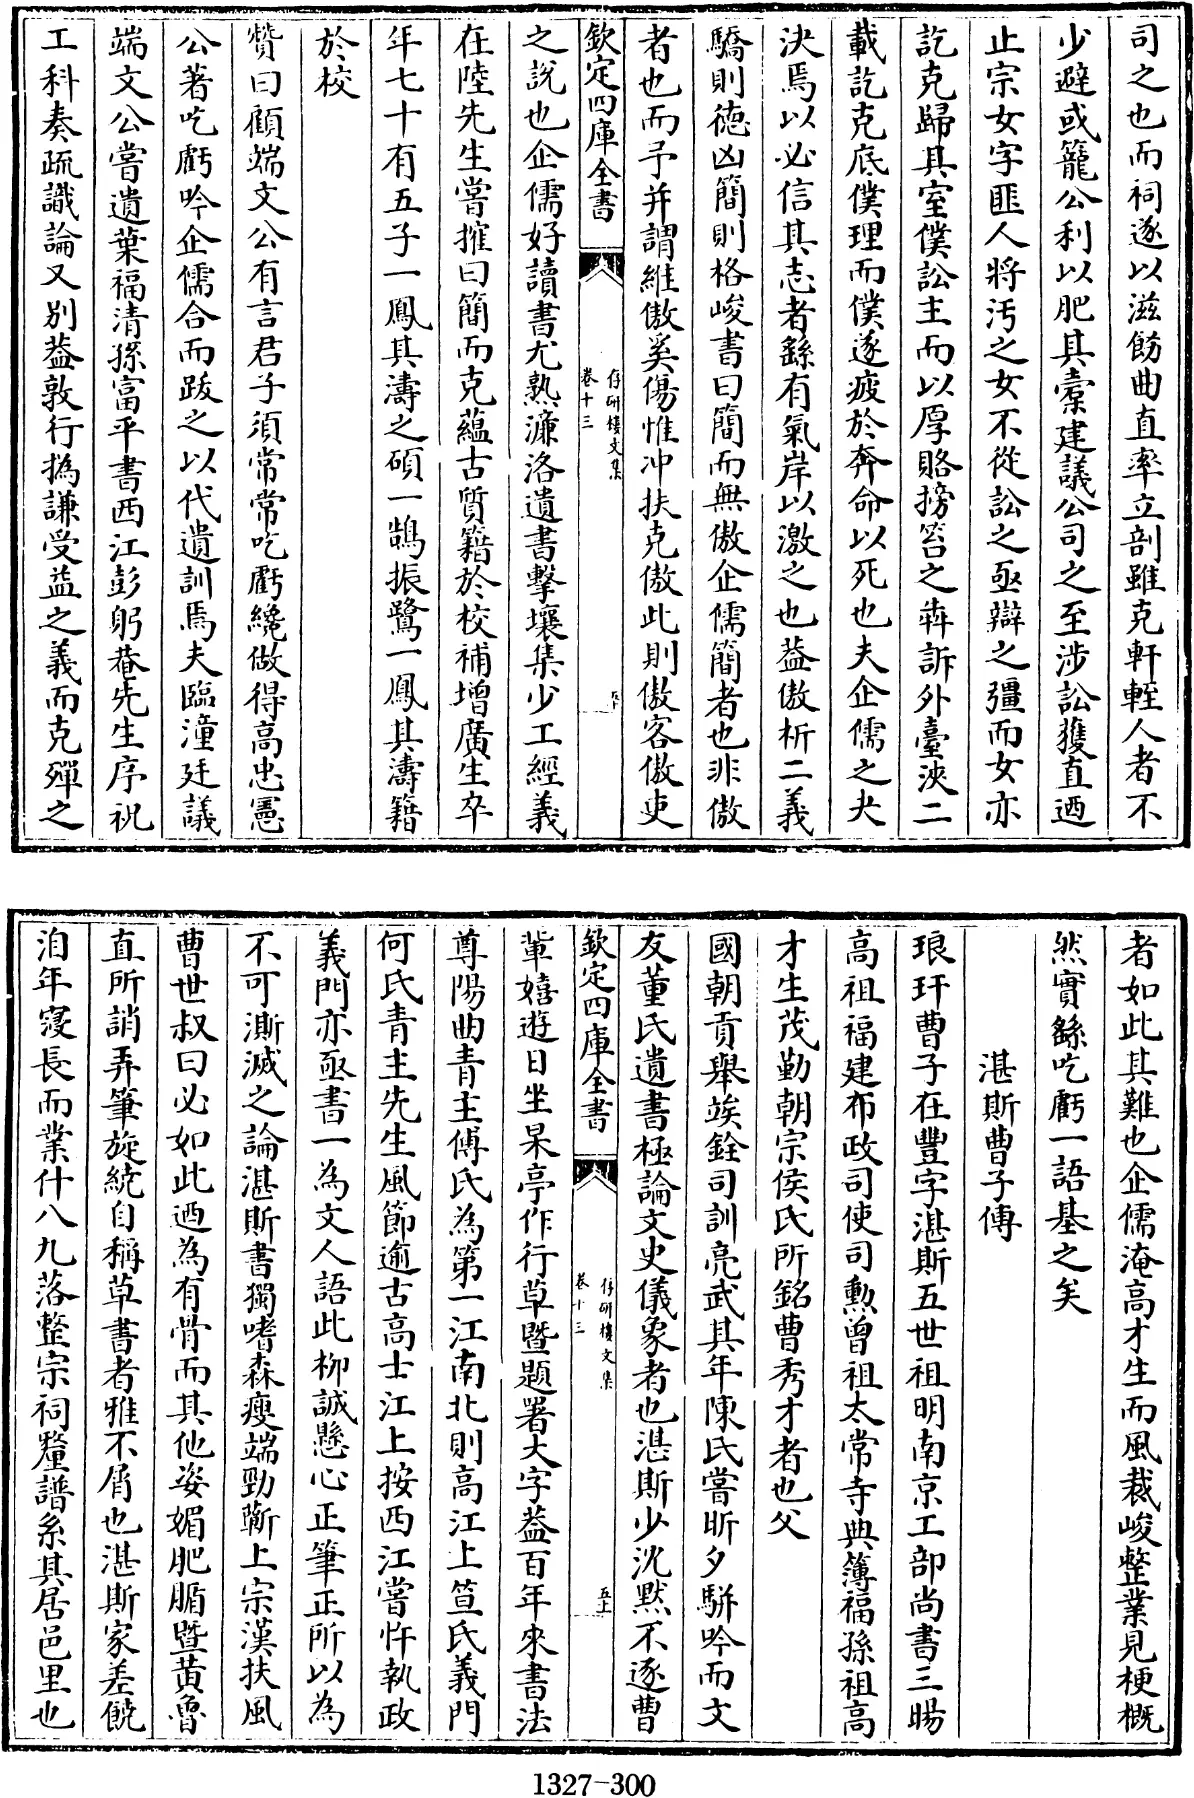 司之也而祠遂以滋飭曲直率立剖雖克軒輊人者不
少避或籠公利以肥其橐建議公司之至涉訟獲直迺
止宗女字匪人將汚之女不從訟之亟辯之彊而女亦
訖克歸其室僕訟主而以厚賂搒笞之犇訴外臺浹二
載訖克底僕理而僕遂疲於奔命以死也夫企儒之夬
決焉以必信其志者繇有氣岸以激之也葢傲析二義
驕則德凶簡則格峻書曰簡而無傲企儒簡者也非傲
者也而予并謂維傲奚傷惟冲扶克傲此則傲客傲吏
欽定四庫全書
存研樓文集
卷十三
五十
之說也企儒好讀書尤熟濂洛遺書擊壤集少工經義
在陸先生嘗擢曰簡而克蘊古質籍於校補增廣生卒
年七十有五子一鳳其濤之碩一鵠振鷺一鳳其濤籍
於校
贊曰顧端文公有言君子須常常吃虧纔做得高忠憲
公著吃虧吟企儒合而跋之以代遺訓焉夫臨潼廷議
端文公嘗遺葉福清孫富平書西江彭躬菴先生序祝
工科奏疏識論又别葢敦行撝謙受益之義而克殫之
者如此其難也企儒淹高才生而風裁峻整業見梗概
然實繇吃虧一語基之矣
湛斯曹子傳
琅玕曹子在豐字湛斯五世祖明南京工部尚書三暘
高祖福建布政司使司勲曾祖太常寺典簿福孫祖高
才生茂勤朝宗侯氏所銘曹秀才者也父
國朝貢舉竢銓司訓亮武其年陳氏嘗昕夕騈吟而文
友董氏遺書極論文史儀象者也湛斯少沉黙不逐曹
欽定四庫全書
存研樓文集
卷十三
五十一
輩嬉遊日坐杲亭作行草暨題署大字葢百年來書法
尊陽曲青主傅氏為第一江南北則高江上笪氏義門
何氏青主先生風節逾古高士江上按西江嘗忤執政
義門亦亟書一為文人語此栁誠懸心正筆正所以為
不可澌滅之論湛斯書獨嗜森瘦端勁蘄上宗漢扶風
曹世叔曰必如此迺為有骨而其他姿媚肥腯暨黄魯
直所誚弄筆旋繞自稱草書者雅不屑也湛斯家差饒
洎年寖長而業什八九落整宗祠釐譜系其居邑里也
1327-300